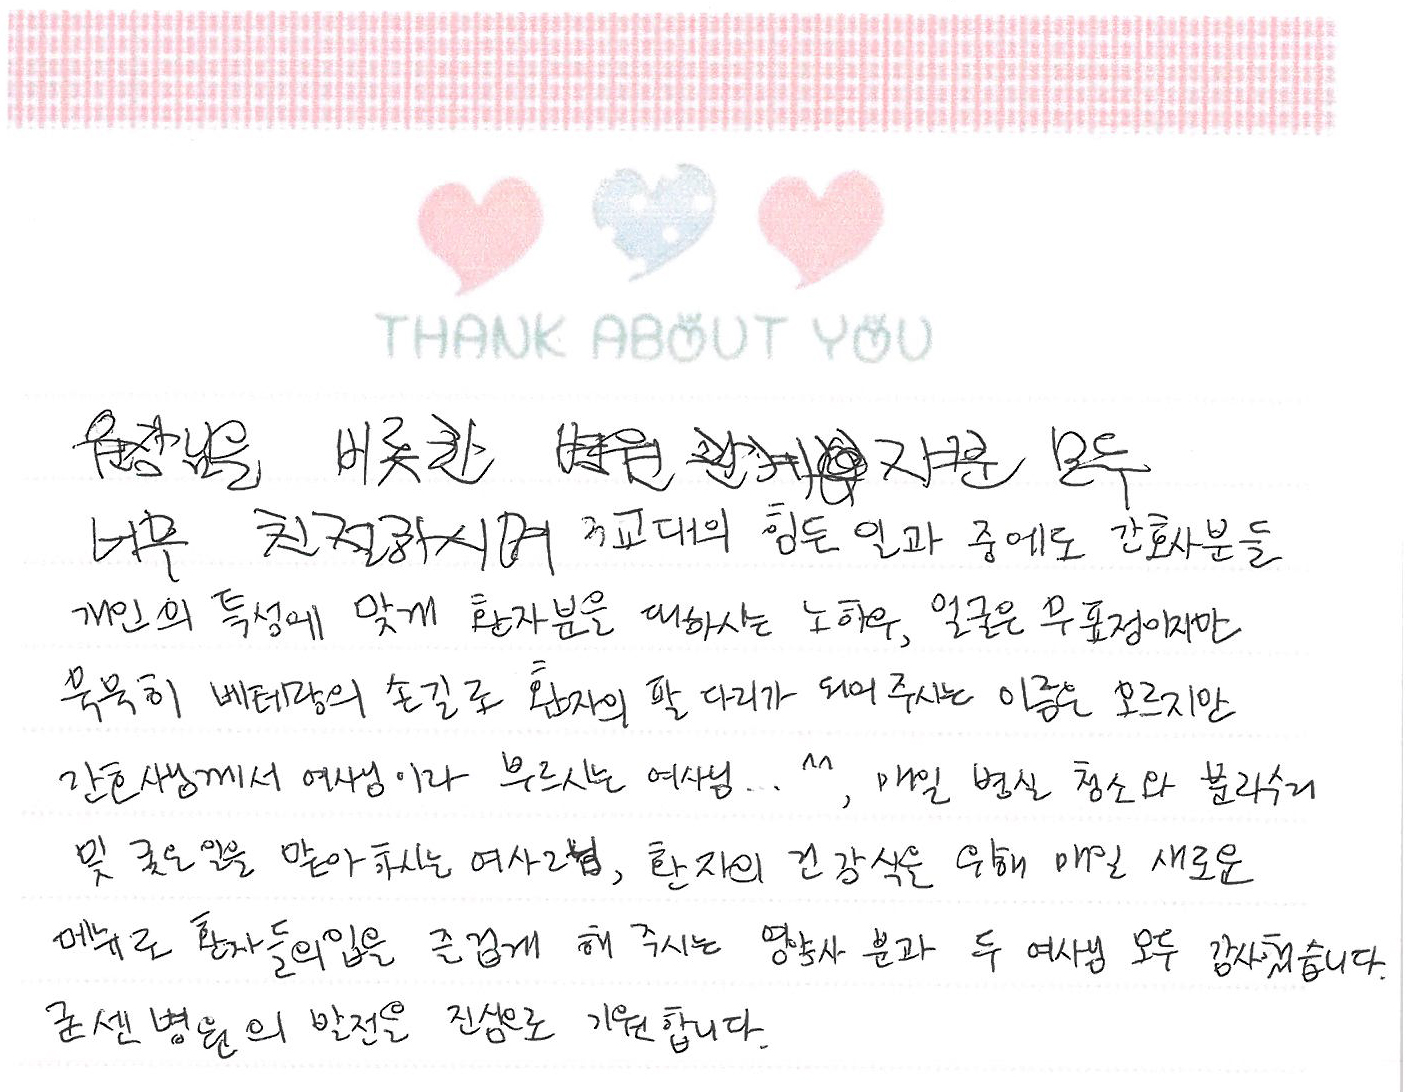 THANK ABOUT YOU
원장님을 비롯한 병원 직원분 모두
너무 친절하시며 3교대의 힘든 일과 중에도 간호사분들
개인의 특성에 맞게 환자분을 대하시는 노하우, 얼굴은 무표정이지만
묵묵히 베테랑의 손길로 환자의 팔 다리가 되어주시는 이름은 모르지만
간호사님께서 여사님이라 부르시는 여사님... ^^, 매일 병실 청소와 분리수거
및 궂은 일을 맡아하시는 여사님, 환자의 건강식을 위해 매일 새로운
메뉴로 환자들의 입을 즐겁게 해 주시는 영양사 분과 두 여사님 모두 감사했습니다.
굿센병원의 발전을 진심으로 기원합니다.